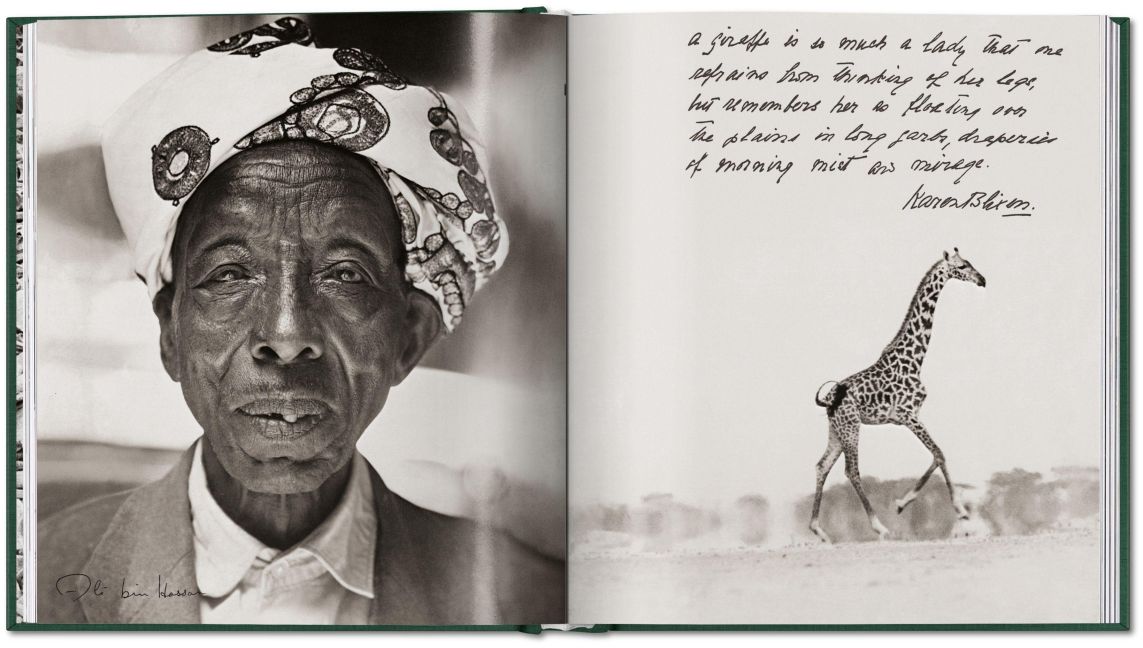 Ali bin Hassan
a giraffe is so much a lady that one
refrains from thinking of her legs,
but remembers her as floating over
the plains in long garbs, draperies
of morning mist and mirage.
Karen Blixen.